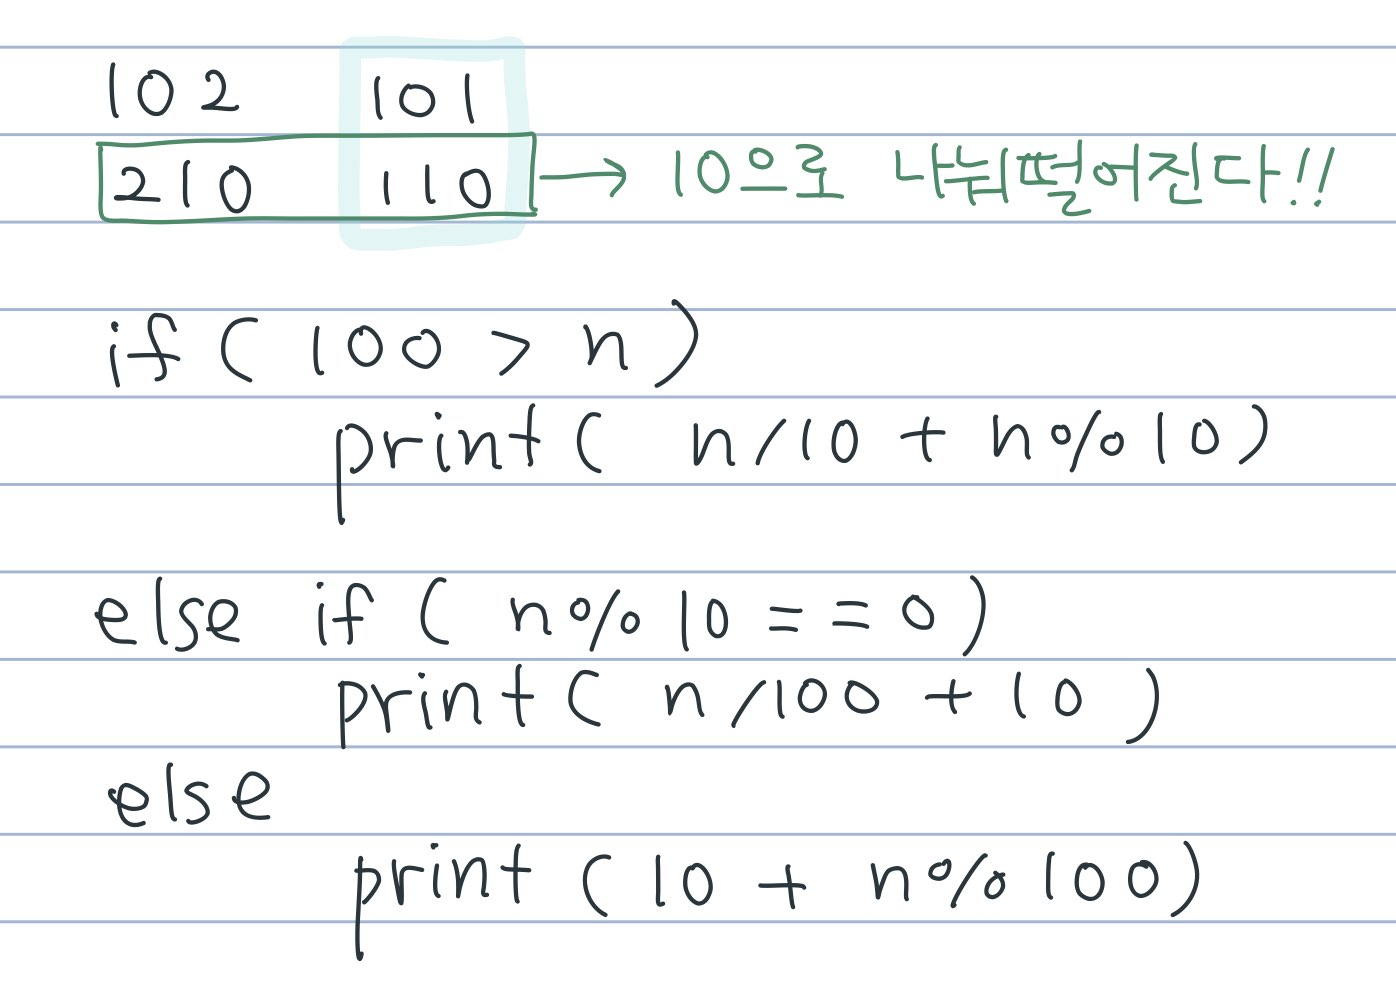 102 101
210 110 → 10으로 나눠떨어진다!!
if ( 100 > n )
print ( n/10 + n%10 )
else if ( n%10 == 0 )
print ( n/100 + 10 )
else
print ( 10 + n%100 )